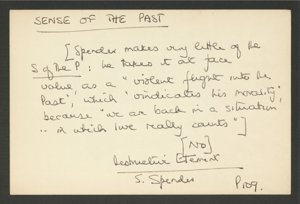 SENSE OF THE PAST
[Spender makes very little of the
S of the P; he takes it at face
value, as a "violent flight into the
Past", which "vindicates his morality",
because "we are back in a situation
.. in which love really counts"]
[No]
Destructive Element
S. Spender P.109.